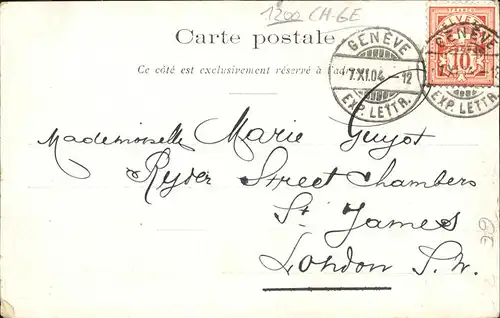 1200 CH-GE
Carte postale
Ce côté est exclusivement réservé à l'adresse
GENÈVE
7.XI.04. – 12
EXP. LETTR.
HELVETIA
10
GENÈVE
EXP. LETTR.
Mademoiselle Marie Guyot
Ryder Street Chambers
St. James
London S.W.